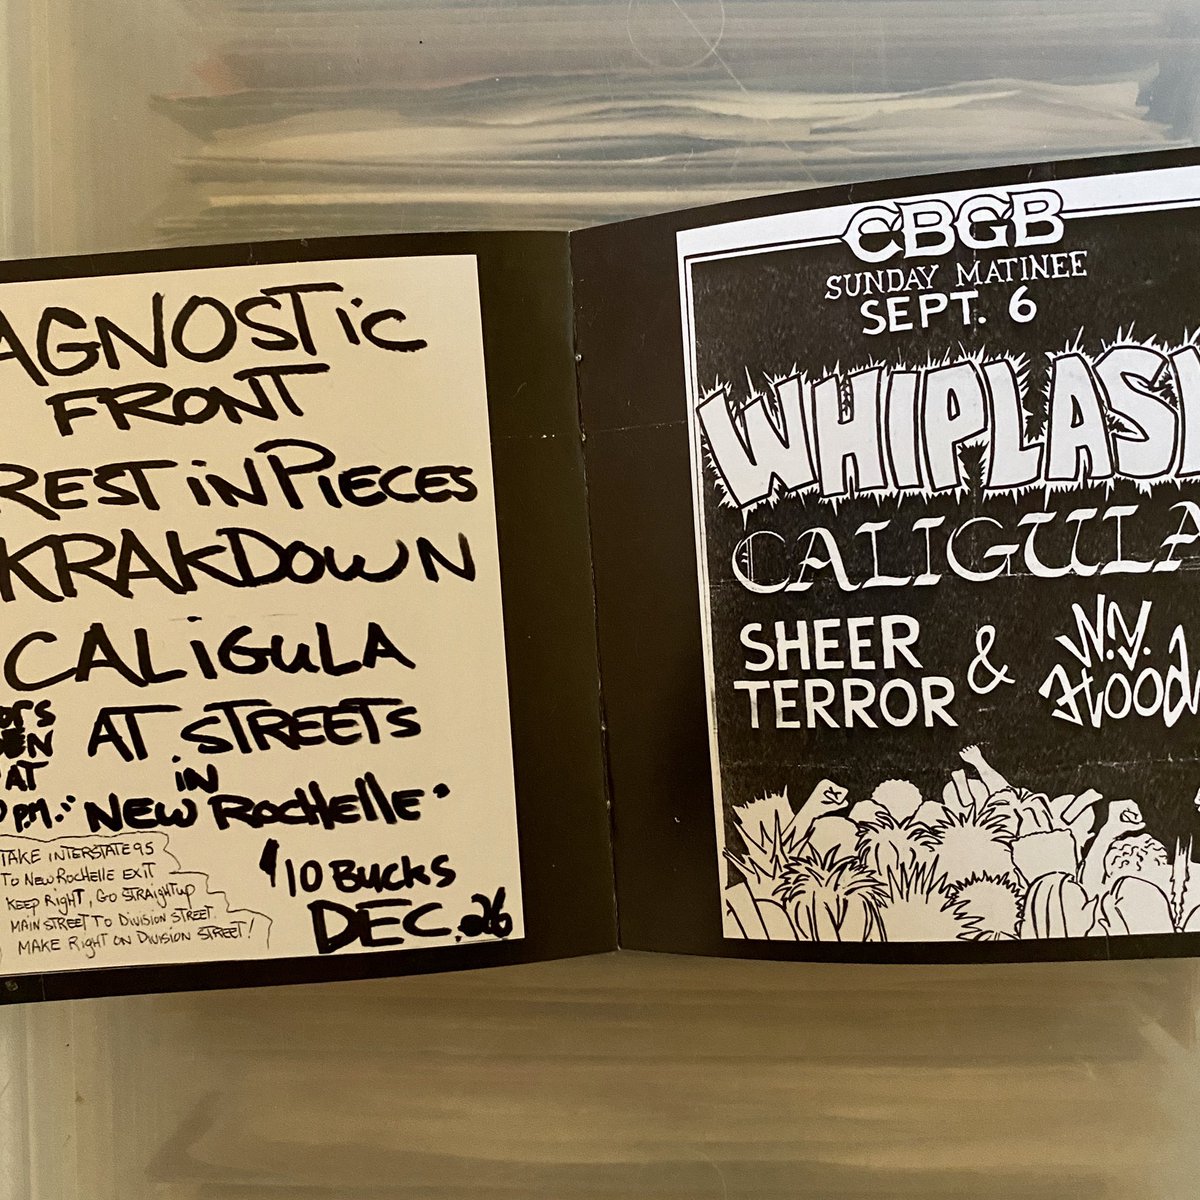 AGNOSTiC
FRONT
REST iN PiECES
KRAKDOWN
CALiGULA
AT STREETS
AT
iN
P.M. "NEW ROCHelle"
TAKE INTERSTATE 95
TO NEW ROCHelle EXIT
KEEP RigHT, GO STRAIgHT up
MAIN STREET TO DIVISION STREET.
MAKE RigHT ON DIVISION STREET!
$10 BUCKS
DEC. 26
CBGB
SUNDAY MATINEE
SEPT. 6
WHIPLASH
CALIGULA
SHEER
TERROR
&
N.Y.
Hoods